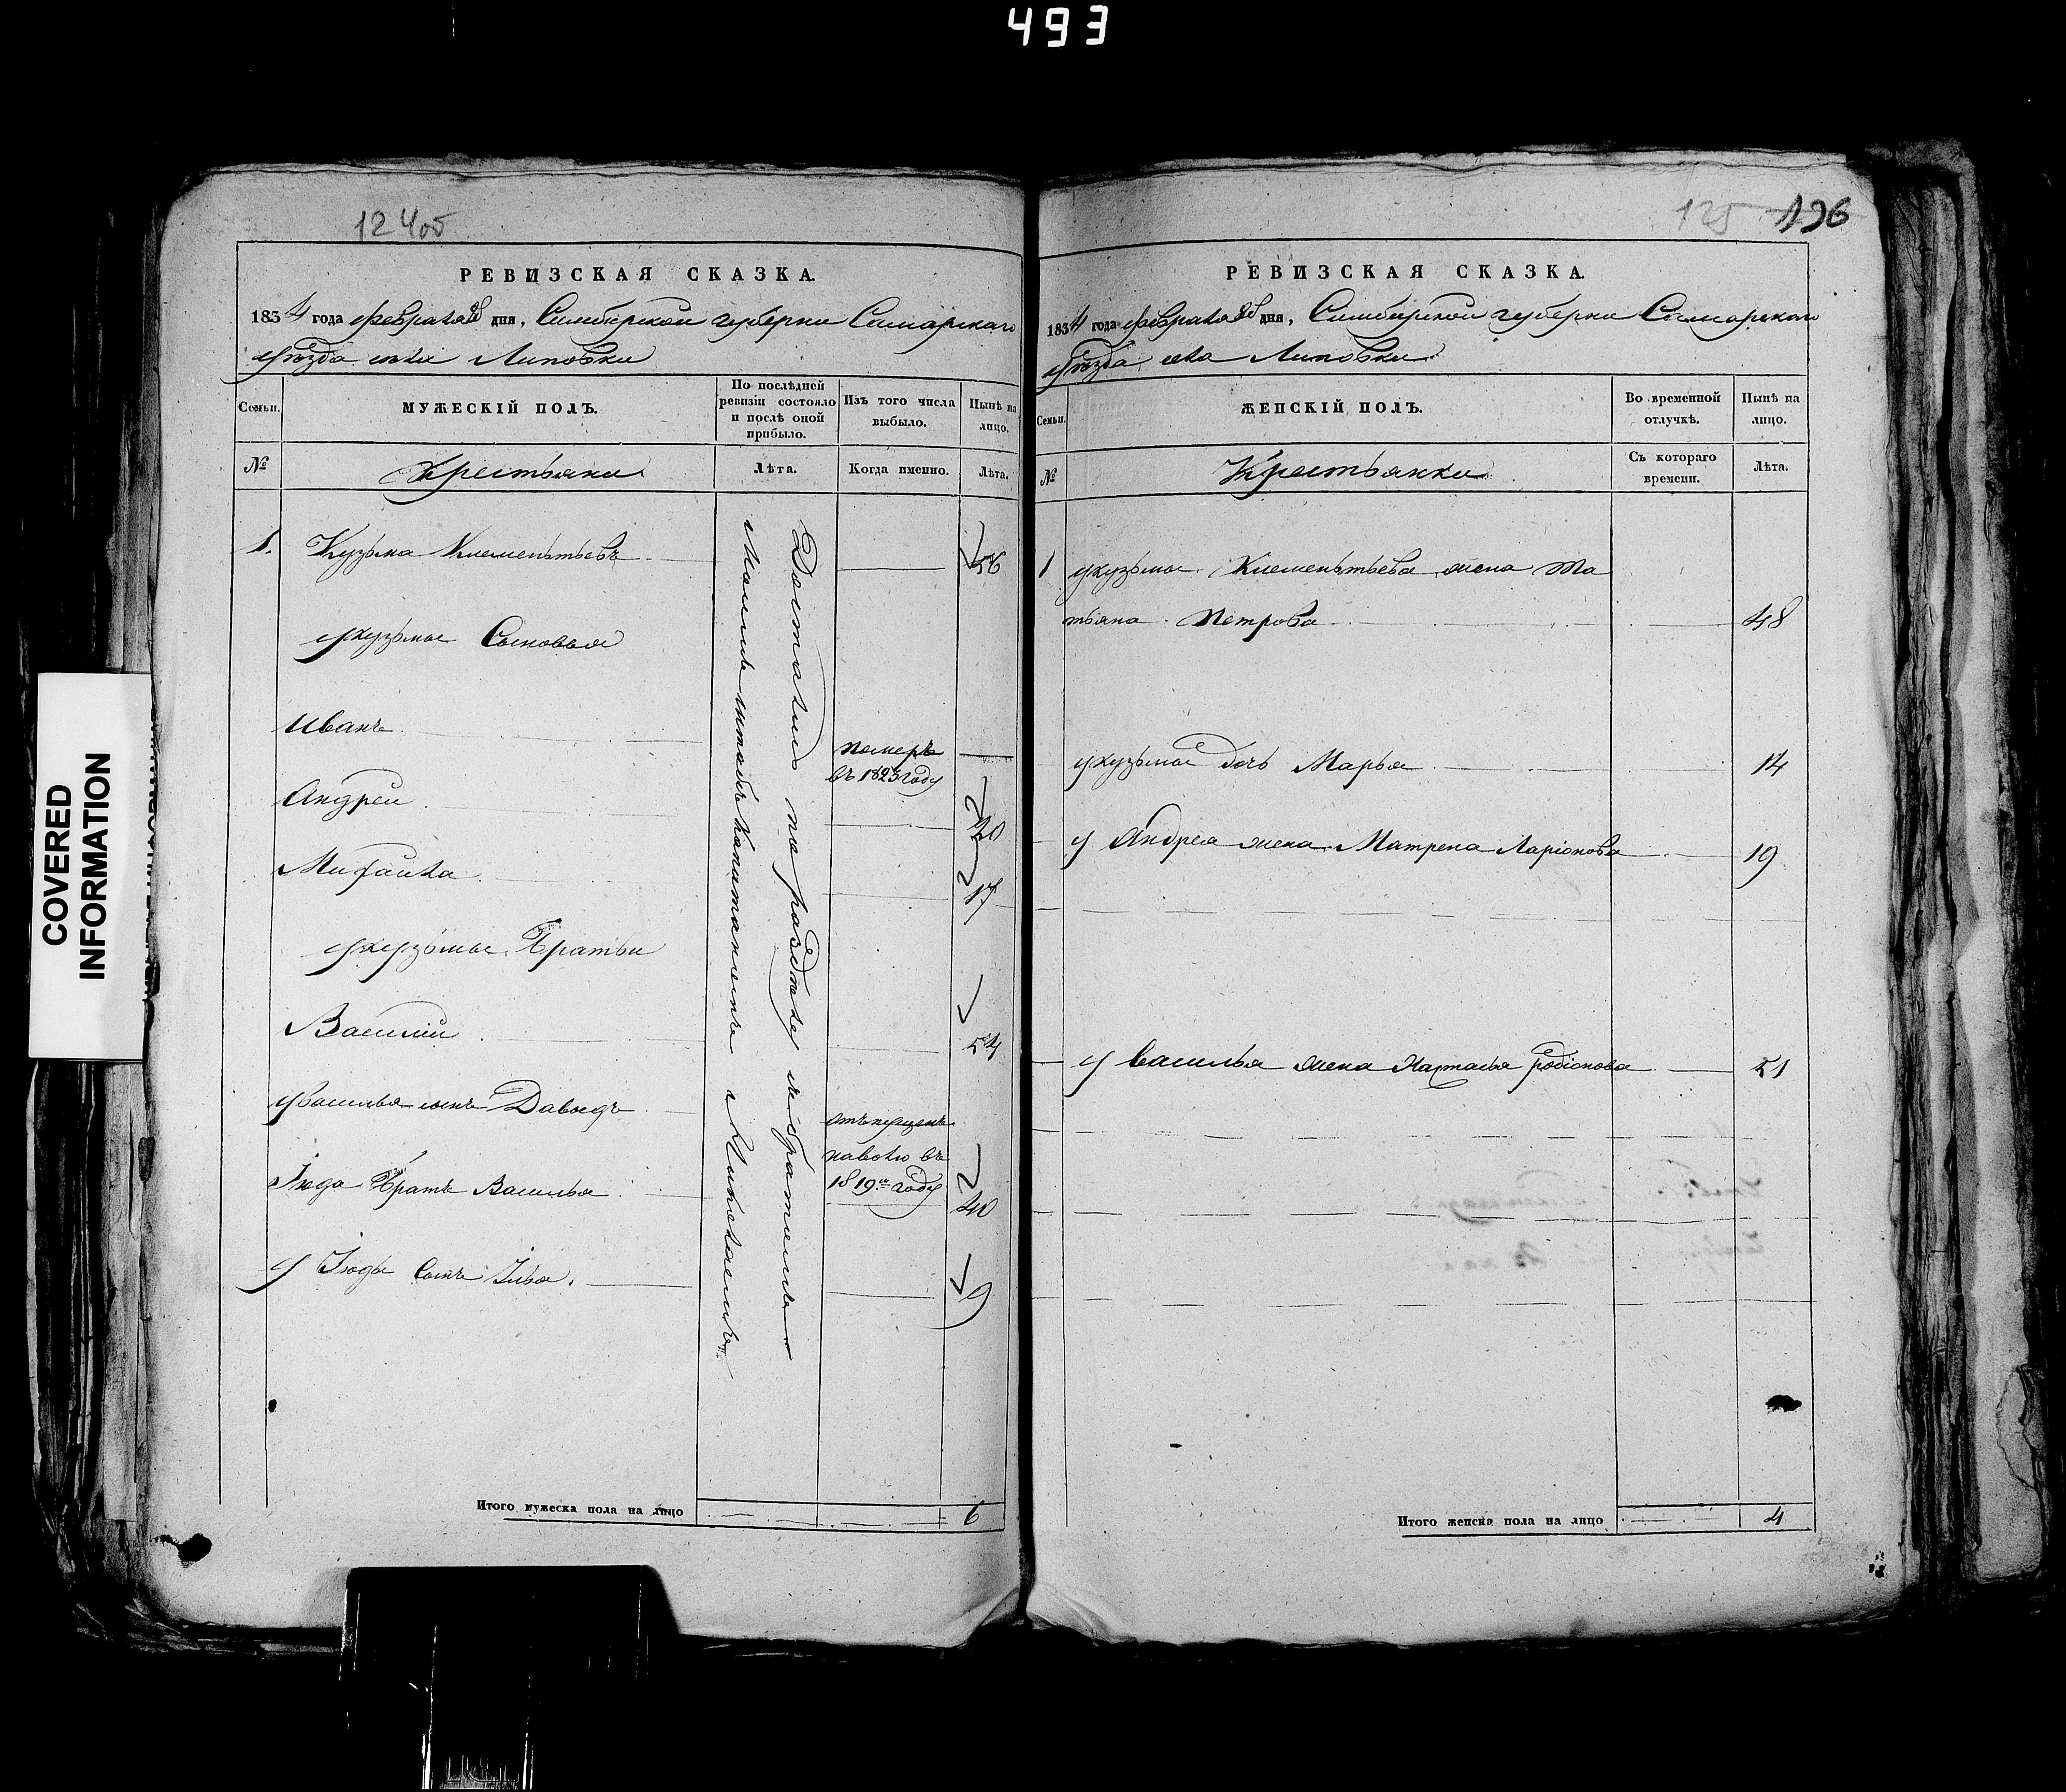 493
124об
РЕВИЗСКАЯ СКАЗКА.
1834 года февраля дня, Симбирской губернии Самарскаго
уѣзда села Липовки
Семьи.
МУЖЕСКІЙ ПОЛЪ.
По послѣдней ревизіи состояло и послѣ оной прибыло.
Изъ того числа выбыло.
Нынѣ на лицо.
№
Крестьяни
Лѣта.
Когда именно.
Лѣта.
1. Кузьма Клементьевъ 56
укузьмы Сыновья
Иванъ померъ въ 1823 году
Андрей 20
Михайла 17
укузьмы Братьи
Василий 54
уВасилья сынъ Давыдъ отъпущенъ наволю въ 1819м году
Іюда Братъ Василья 40
у Іюды Сынъ Илья. 9
Достались по разделу събратьями
Итого мужеска пола на лицо 6
COVERED
INFORMATION
125 126
РЕВИЗСКАЯ СКАЗКА.
1834 года февраля дня, Симбирской губернии Самарскаго
уѣзда села Липовки
Семьи.
ЖЕНСКІЙ ПОЛЪ.
Во временной отлучкѣ.
Нынѣ на лицо.
№
Крестьянки
Съ котораго времени.
Лѣта.
1 укузьмы Клеменьтьева жена Та
тьяна Петрова 48
укузьмы дочь Марья 14
у Андрея жена Матрена Ларіонова 19
у василья жена Наталья родіонова 51
Итого женска пола на лицо 4